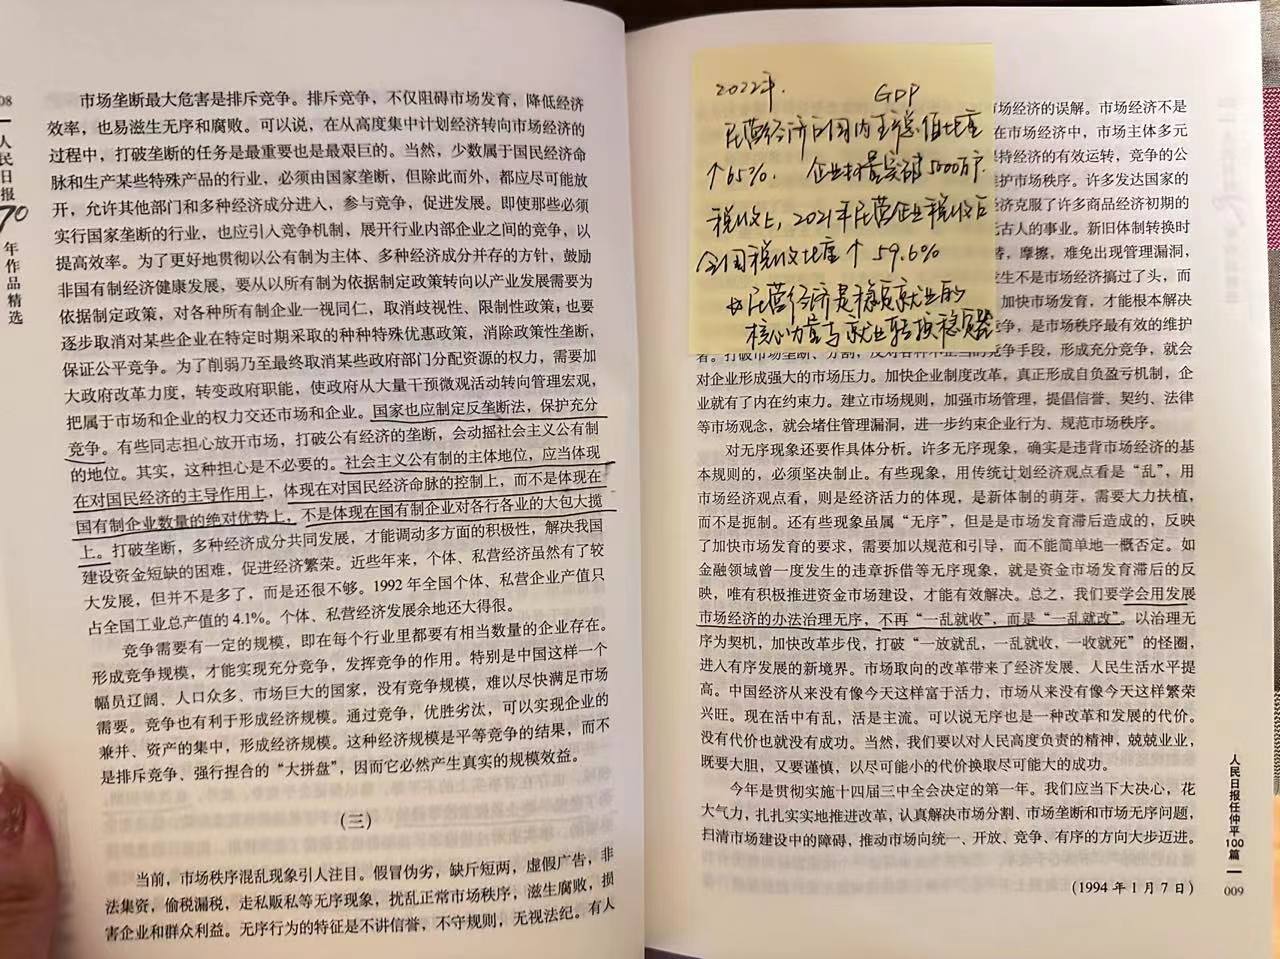 08
人民日报70年作品精选
市场垄断最大危害是排斥竞争。排斥竞争，不仅阻碍市场发育，降低经济
效率，也易滋生无序和腐败。可以说，在从高度集中计划经济转向市场经济的
过程中，打破垄断的任务是最重要也是最艰巨的。当然，少数属于国民经济命
脉和生产某些特殊产品的行业，必须由国家垄断，但除此而外，都应尽可能放
开，允许其他部门和多种经济成分进入，参与竞争，促进发展。即使那些必须
实行国家垄断的行业，也应引入竞争机制、展开行业内部企业之间的竞争，以
提高效率。为了更好地贯彻以公有制为主体、多种经济成分并存的方针，鼓励
非国有制经济健康发展，要从以所有制为依据制定政策转向以产业发展需要为
依据制定政策，对各种所有制企业一视同仁，取消歧视性、限制性政策；也要
逐步取消对某些企业在特定时期采取的种种特殊优惠政策，消除政策性垄断，
保证公平竞争。为了削弱乃至最终取消某些政府部门分配资源的权力，需要加
大政府改革力度，转变政府职能，使政府从大量干预微观活动转向管理宏观，
把属于市场和企业的权力交还市场和企业。国家也应制定反垄断法，保护充分
竞争。有些同志担心放开市场，打破公有经济的垄断，会动摇社会主义公有制
的地位。其实，这种担心是不必要的。社会主义公有制的主体地位，应当体现
在对国民经济的主导作用上，体现在对国民经济命脉的控制上，而不是体现在
国有制企业数量的绝对优势上，不是体现在国有制企业对各行各业的大包大揽
上。打破垄断，多种经济成分共同发展，才能调动多方面的积极性，解决我国
建设资金短缺的困难，促进经济繁荣。近些年来，个体、私营经济虽然有了较
大发展，但并不是多了，而是还很不够。1992年全国个体、私营企业产值只
占全国工业总产值的4.1%。个体、私营经济发展余地还大得很。
竞争需要有一定的规模，即在每个行业里都要有相当数量的企业存在。
形成竞争规模，才能实现充分竞争，发挥竞争的作用。特别是中国这样一个
幅员辽阔、人口众多、市场巨大的国家，没有竞争规模，难以尽快满足市场
需要。竞争也有利于形成经济规模。通过竞争，优胜劣汰，可以实现企业的
兼并、资产的集中，形成经济规模。这种经济规模是平等竞争的结果，而不
是排斥竞争、强行捏合的“大拼盘”，因而它必然产生真实的规模效益。
（三）
当前，市场秩序混乱现象引人注目。假冒伪劣，缺斤短两，虚假广告，非
法集资，偷税漏税，走私贩私等无序现象，扰乱正常市场秩序，滋生腐败，损
害企业和群众利益。无序行为的特征是不讲信誉，不守规则，无视法纪。有人
2022年.
GDP
民营经济占国内生产总值比重
↑65%. 企业数量突破5000万户.
税收上, 2021年民营企业税收占
全国税收比重↑59.6%
民营经济是稳定就业的
核心力量与就业转换稳定器
市场经济的误解。市场经济不是
在市场经济中，市场主体多元
持经济的有效运转，竞争的公
护市场秩序。许多发达国家的
经济克服了许多商品经济初期的
古人的事业。新旧体制转换时
，摩擦，难免出现管理漏洞，
生不是市场经济搞过了头，而
加快市场发育，才能根本解决
争，是市场秩序最有效的维护
者。打破市场垄断、分割，反对各种不正当的竞争手段，形成充分竞争，就会
对企业形成强大的市场压力。加快企业制度改革，真正形成自负盈亏机制，企
业就有了内在约束力。建立市场规则，加强市场管理，提倡信誉、契约、法律
等市场观念，就会堵住管理漏洞，进一步约束企业行为、规范市场秩序。
对无序现象还要作具体分析。许多无序现象，确实是违背市场经济的基
本规则的，必须坚决制止。有些现象，用传统计划经济观点看是“乱”，用
市场经济观点看，则是经济活力的体现，是新体制的萌芽，需要大力扶植，
而不是扼制。还有些现象虽属“无序”，但是是市场发育滞后造成的，反映
了加快市场发育的要求，需要加以规范和引导，而不能简单地一概否定。如
金融领域曾一度发生的违章拆借等无序现象，就是资金市场发育滞后的反
映，唯有积极推进资金市场建设，才能有效解决。总之，我们要学会用发展
市场经济的办法治理无序，不再“一乱就收”，而是“一乱就改”。以治理无
序为契机，加快改革步伐，打破“一放就乱，一乱就收，一收就死”的怪圈，
进入有序发展的新境界。市场取向的改革带来了经济发展、人民生活水平提
高。中国经济从来没有像今天这样富于活力，市场从来没有像今天这样繁荣
兴旺。现在活中有乱，活是主流。可以说无序也是一种改革和发展的代价。
没有代价也就没有成功。当然，我们要以对人民高度负责的精神，兢兢业业，
既要大胆，又要谨慎，以尽可能小的代价换取尽可能大的成功。
今年是贯彻实施十四届三中全会决定的第一年。我们应当下大决心，花
大气力，扎扎实实地推进改革，认真解决市场分割、市场垄断和市场无序问题，
扫清市场建设中的障碍，推动市场向统一、开放、竞争、有序的方向大步迈进。
（1994年1月7日）
人民日报任仲平100篇
009